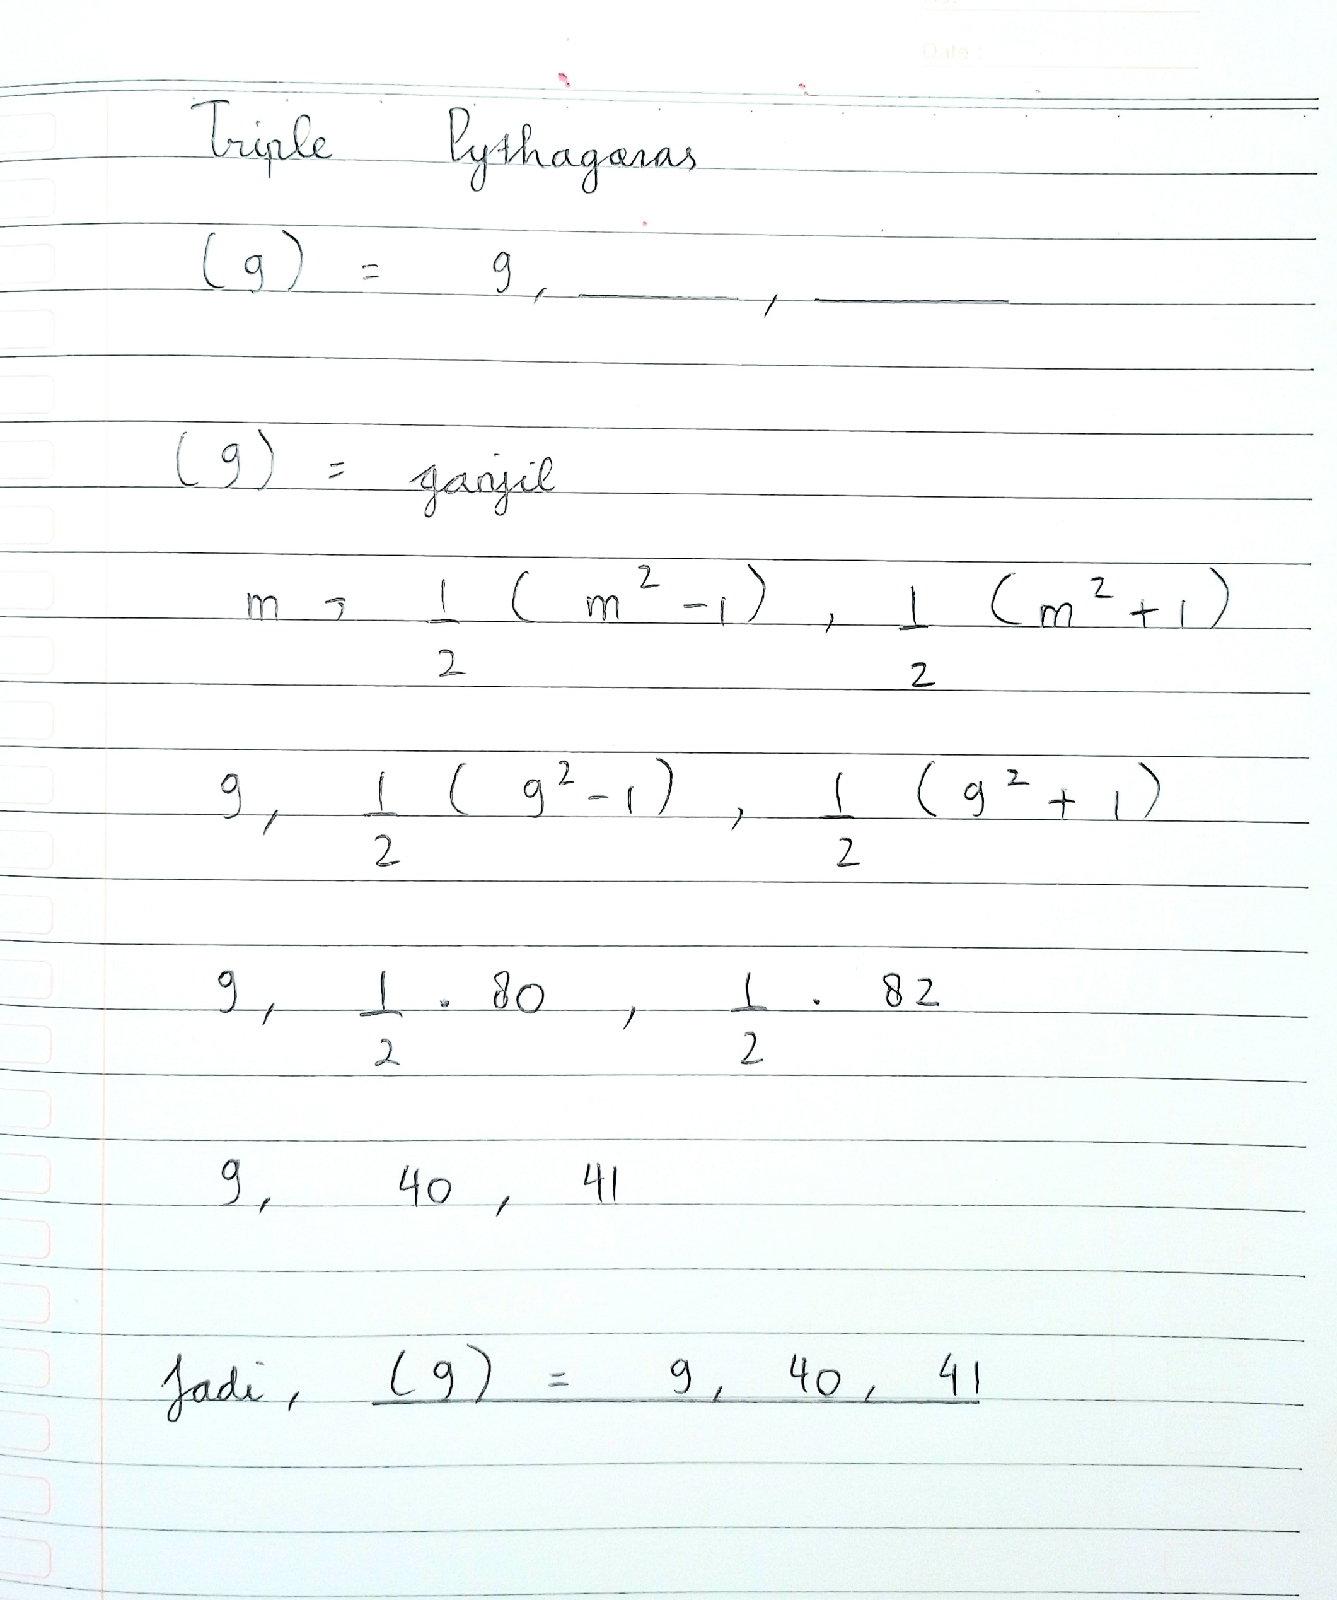 Triple Pythagoras
(9) = 9, ____, ____
(9) = ganjil
m, 1/2 (m² - 1), 1/2 (m² + 1)
9, 1/2 (9² - 1), 1/2 (9² + 1)
9, 1/2 . 80, 1/2 . 82
9, 40, 41
Jadi, (9) = 9, 40, 41